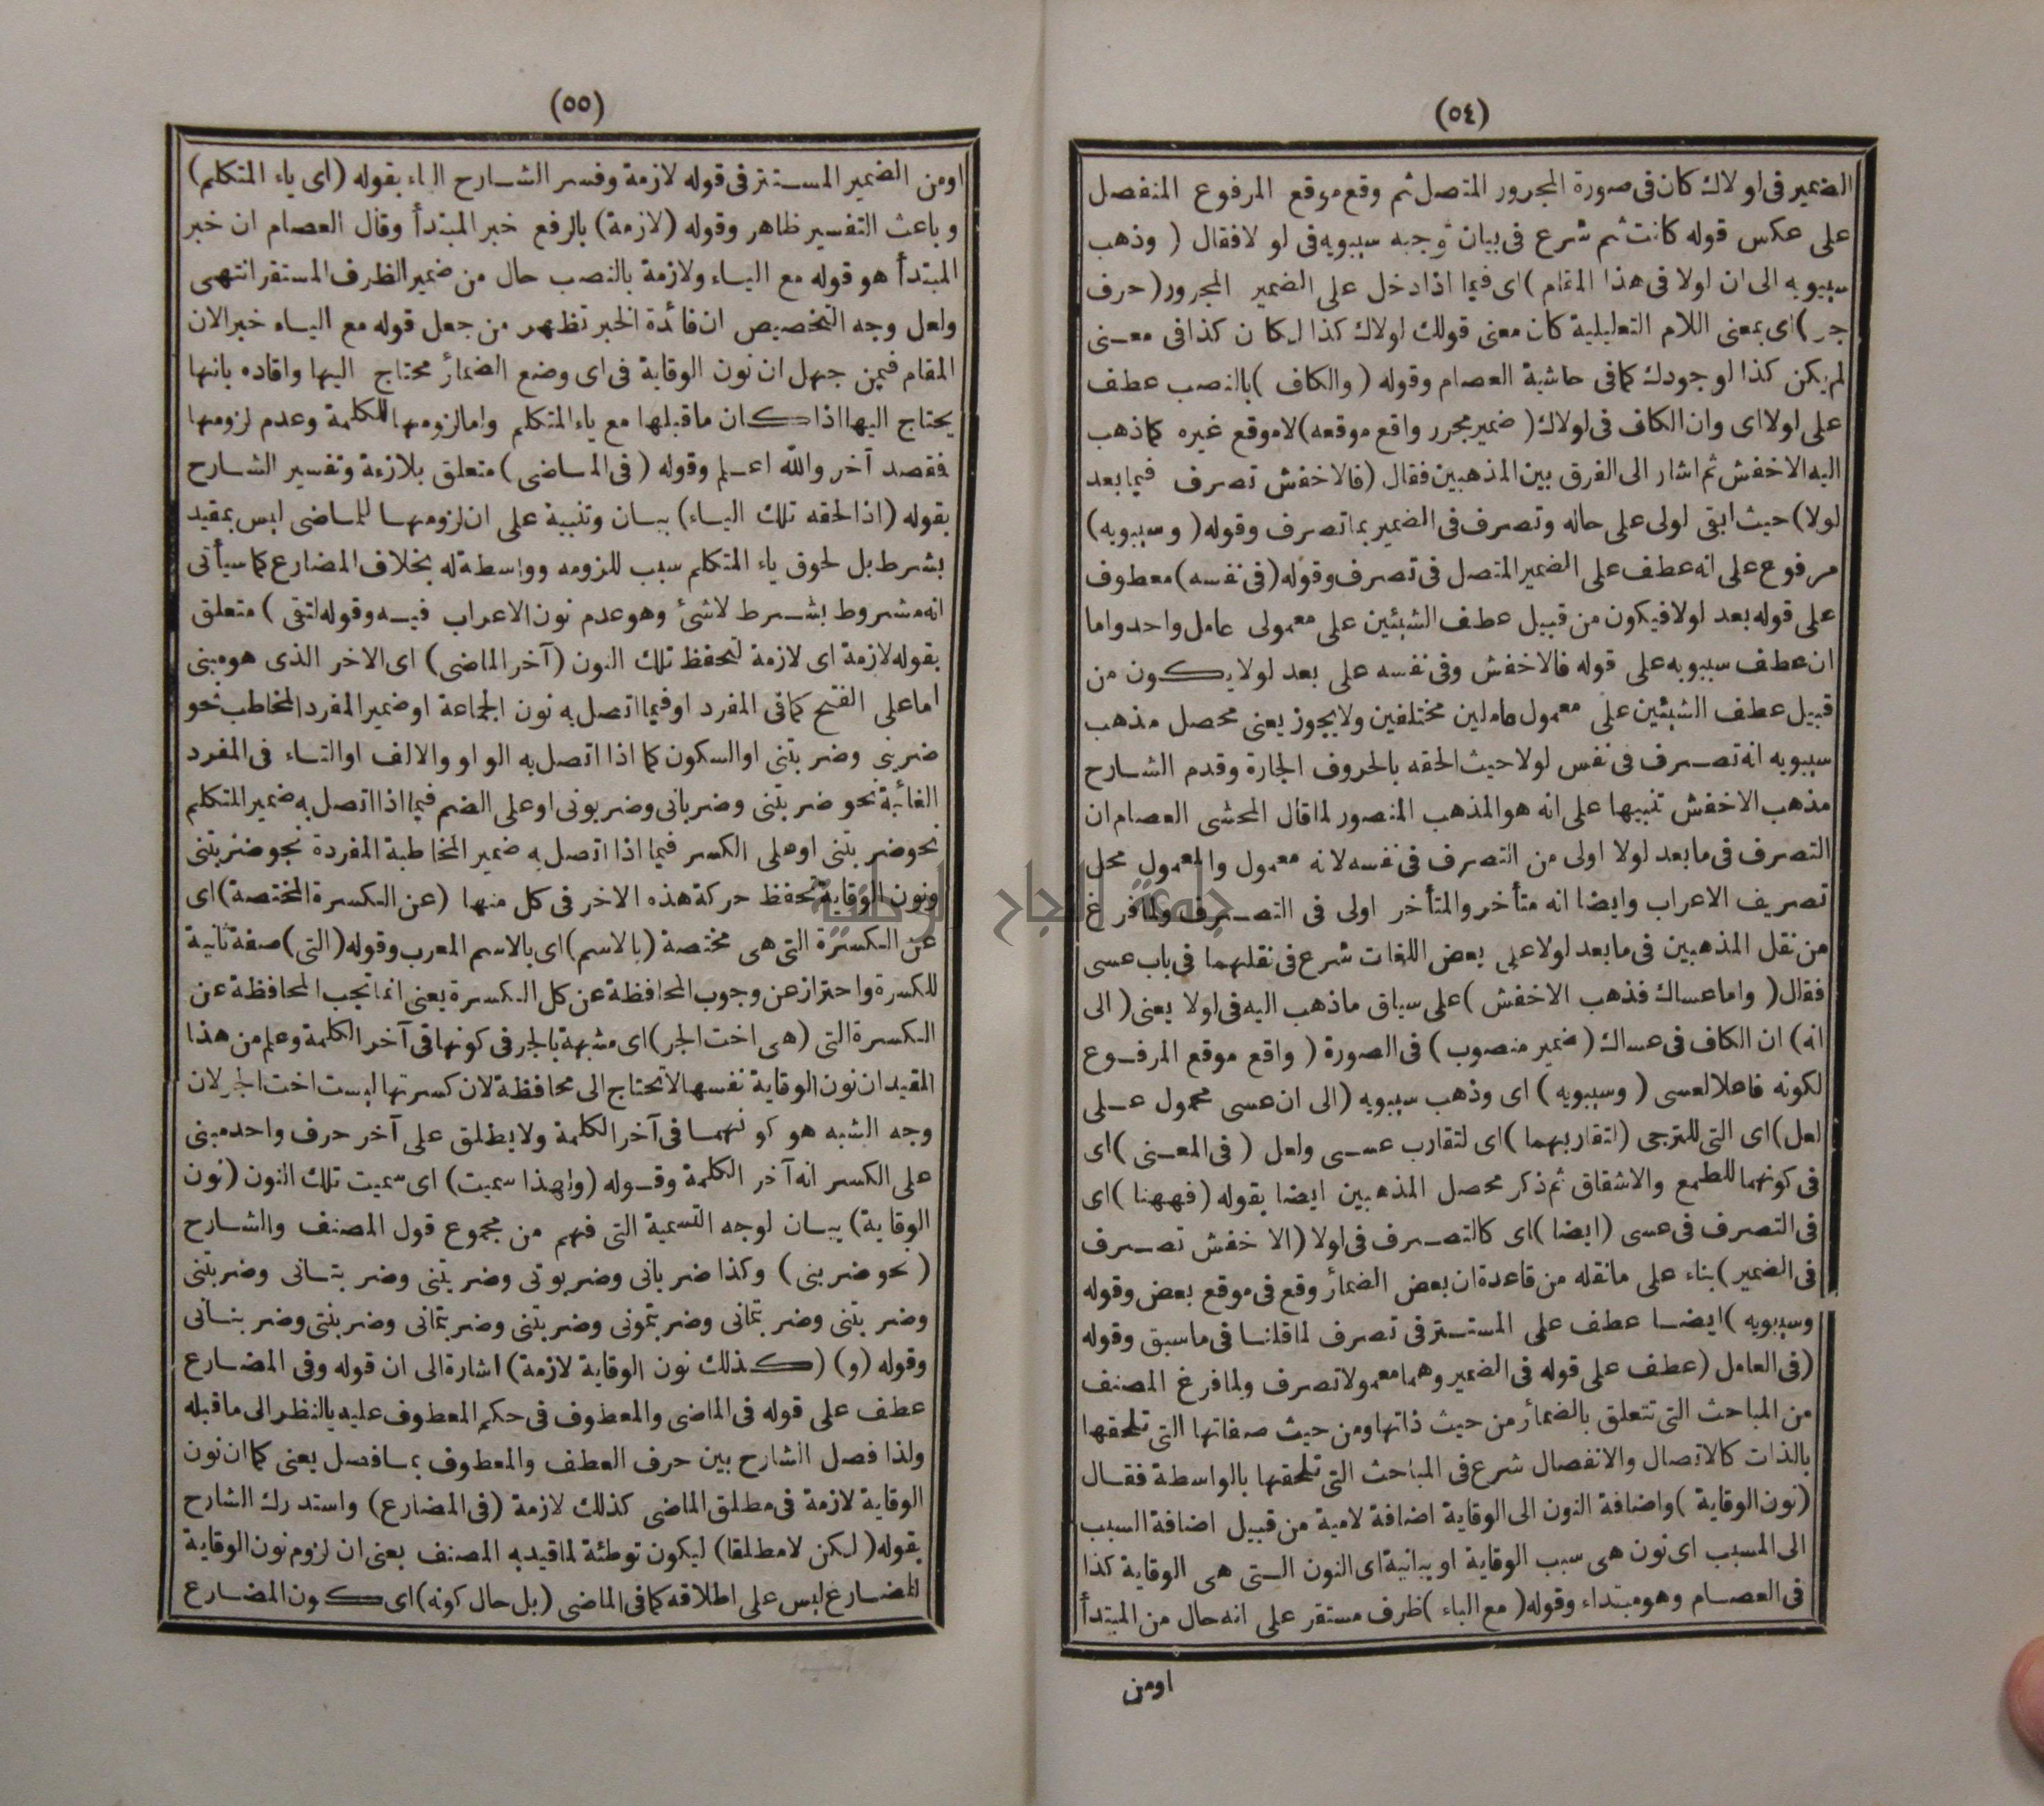 (٥٤)
الضمير فى لولاك كان فى صورة المجرور المتصل ثم وقع موقع المرفوع المنفصل
على عكس قوله كانت ثم شرع فى بيان توجيه سيبويه فى لولا فقال ( وذهب
سيبويه الى ان لولا فى هذا المقام ) اى فيما اذا دخل على الضمير المجرور ( حرف
جر ) اى بمعنى اللام التعليلية كان معنى قولك لولاك كذا لكان كذا فى معنى
لم يكن كذا لوجودك كما فى حاشية العصام وقوله ( والكاف ) بالنصب عطف
على لولا اى وان الكاف فى لولاك ( ضمير مجرر واقع موقعه ) لا موقع غيره كما ذهب
اليه الاخفش ثم اشار الى الفرق بين المذهبين فقال ( فالاخفش تصرف فيما بعد
لولا ) حيث ابقى لولى على حاله وتصرف فى الضمير بما تصرف وقوله ( وسيبويه )
مرفوع على انه عطف على الضمير المتصل فى تصرف وقوله ( فى نفسه ) معطوف
على قوله بعد لولا فيكون من قبيل عطف الشيئين على معمولى عامل واحد واما
ان عطف سيبويه على قوله فالاخفش وفى نفسه على بعد لولا يكون من
قبيل عطف الشيئين على معمول عاملين مختلفين ولا يجوز يعنى محصل مذهب
سيبويه انه تصرف فى نفس لولا حيث الحقه بالحروف الجارة وقدم الشارح
مذهب الاخفش تنبيها على انه هو المذهب المنصور لما قال المحشى العصام ان
التصرف فى ما بعد لولا اولى من التصرف فى نفسه لانه معمول والمعمول محل
تصريف الاعراب وايضا انه متأخر والمتأخر اولى فى التصرف ولما فرغ
من نقل المذهبين فى ما بعد لولا على بعض اللغات شرع فى نقلهما فى باب عسى
فقال ( واما عساك فذهب الاخفش ) على سياق ما ذهب اليه فى لولا يعنى ( الى
انه ) ان الكاف فى عساك ( ضمير منصوب ) فى الصورة ( واقع موقع المرفوع
لكونه فاعلا لعسى ( وسيبويه ) اى وذهب سيبويه ( الى ان عسى محمول على
لعل ) اى التى للترجى ( لتقاربهما ) اى لتقارب عسى ولعل ( فى المعنى ) اى
فى كونهما للطمع والاشقاق ثم ذكر محصل المذهبين ايضا بقوله ( فههنا ) اى
فى التصرف فى عسى ( ايضا ) اى كالتصرف فى لولا ( الاخفش تصرف
فى الضمير ) بناء على ما نقله من قاعدة ان بعض الضمائر وقع فى موقع بعض وقوله
وسيبويه ) ايضا عطف على المستتر فى تصرف لما قلنا فى ما سبق وقوله
( فى العامل ( عطف على قوله فى الضمير وهما معمولا تصرف ولما فرغ المصنف
من المباحث التى تتعلق بالضمائر من حيث ذاتها ومن حيث صفاتها التى تلحقها
بالذات كالاتصال والانفصال شرع فى المباحث التى تلحقها بالواسطة فقال
( نون الوقاية ) واضافة النون الى الوقاية اضافة لامية من قبيل اضافة السبب
الى المسبب اى نون هى سبب الوقاية او بيانية اى النون التى هى الوقاية كذا
فى العصام وهو مبتداء وقوله ( مع الياء ) ظرف مستقر على انه حال من المبتدأ
اومن
(٥٥)
اومن الضمير المستتر فى قوله لازمة وفسر الشارح الياء بقوله ( اى ياء المتكلم )
وباعث التفسير ظاهر وقوله ( لازمة ) بالرفع خبر المبتدأ وقال العصام ان خبر
المبتدأ هو قوله مع الياء ولازمة بالنصب حال من ضمير الظرف المستقر انتهى
ولعل وجه التخصيص ان فائدة الخبر تظهر من جعل قوله مع الياء خبرا لان
المقام فيمن جهل ان نون الوقاية فى اى وضع الضمائر محتاج اليها وافاده بانها
يحتاج اليها اذا كان ما قبلها مع ياء المتكلم واما لزومها للكلمة وعدم لزومها
فقصد آخر والله اعلم وقوله ( فى الماضى ) متعلق بلازمة وتفسير الشارح
بقوله ( اذا لحقه تلك الياء ) بيان وتنبية على ان لزومها للماضى ليس بمقيد
بشرط بل لحوق ياء المتكلم سبب للزومه وواسطة له بخلاف المضارع كما سيأتى
انه مشروط بشرط لا شئ وهو عدم نون الاعراب فيه وقوله لتقى ) متعلق
بقوله لازمة اى لازمة لتحفظ تلك النون ( آخر الماضى ) اى الاخر الذى هو مبنى
اما على الفتح كما فى المفرد او فيما اتصل به نون الجماعة او ضمير المفرد المخاطب نحو
ضربنى وضربتنى او السكون كما اذا اتصل به الواو والالف او التاء فى المفرد
الغائبة نحو ضربتنى وضربانى وضربونى او على الضم فيما اذا اتصل به ضمير المتكلم
نحو ضربتنى او على الكسر فيما اذا اتصل به ضمير المخاطبة المفردة نحو ضربتنى
ونون الوقاية تحفظ حركة هذه الاخر فى كل منها ( عن الكسرة المختصة ) اى
عن الكسرة التى هى مختصة ( بالاسم ) اى بالاسم المعرب وقوله ( التى ) صفة ثانية
للكسرة واحتراز عن وجوب المحافظة عن كل الكسرة يعنى انما تجب المحافظة عن
الكسرة التى ( هى اخت الجر ) اى مشبهة بالجر فى كونها فى آخر الكلمة وعلم من هذا
المقيد ان نون الوقاية نفسها لا تحتاج الى محافظة لان كسرتها ليست اخت الجر لان
وجه الشبه هو كونهما فى آخر الكلمة ولا يطلق على آخر حرف واحد مبنى
على الكسر انه آخر الكلمة وقوله ( ولهذا سميت ) اى سميت تلك النون ( نون
الوقاية ) بيان لوجه التسمية التى فهم من مجموع قول المصنف والشارح
( نحو ضربنى ) وكذا ضربانى وضربونى وضربتنى وضربتانى وضربتنى
وضربتنى وضربتمانى وضربتمونى وضربتنى وضربتمانى وضربتنى وضربنانى
وقوله ( و ) ( كذلك نون الوقاية لازمة ) اشارة الى ان قوله وفى المضارع
عطف على قوله فى الماضى والمعطوف فى حكم المعطوف عليه بالنظر الى ما قبله
ولذا فصل الشارح بين حرف العطف والمعطوف بما فصل يعنى كما ان نون
الوقاية لازمة فى مطلق الماضى كذلك لازمة ( فى المضارع ) واستدرك الشارح
بقوله ( لكن لا مطلقا ) ليكون توطئة لما قيد به المصنف يعنى ان لزوم نون الوقاية
للمضارع ليس على اطلاقه كما فى الماضى ( بل حال كونه ) اى كون المضارع
جامعة النجاح الوطنية